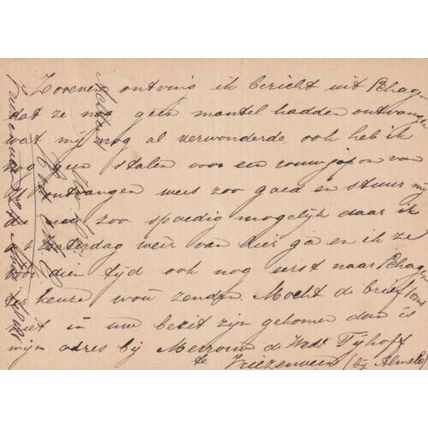 Zoo even ontving ik bericht uit Schagen
dat ze nog geen mantel hadden ontvangen
wat mij nog al verwonderde, ook heb ik
nog geen stalen voor een rouwjapon van
U ontvangen wees zoo goed en stuur mij
die zoo spoedig mogelijk daar ik
Zaterdag weer van hier ga en ik ze
voor dien tijd ook nog eerst naar Schagen
ter keuze wou zenden. Mocht de brief soms
niet in uw bezit zijn gekomen dan is
mijn adres bij Mevrouw de Wed. Tijhoff
te Vriezenveen (bij Almelo)